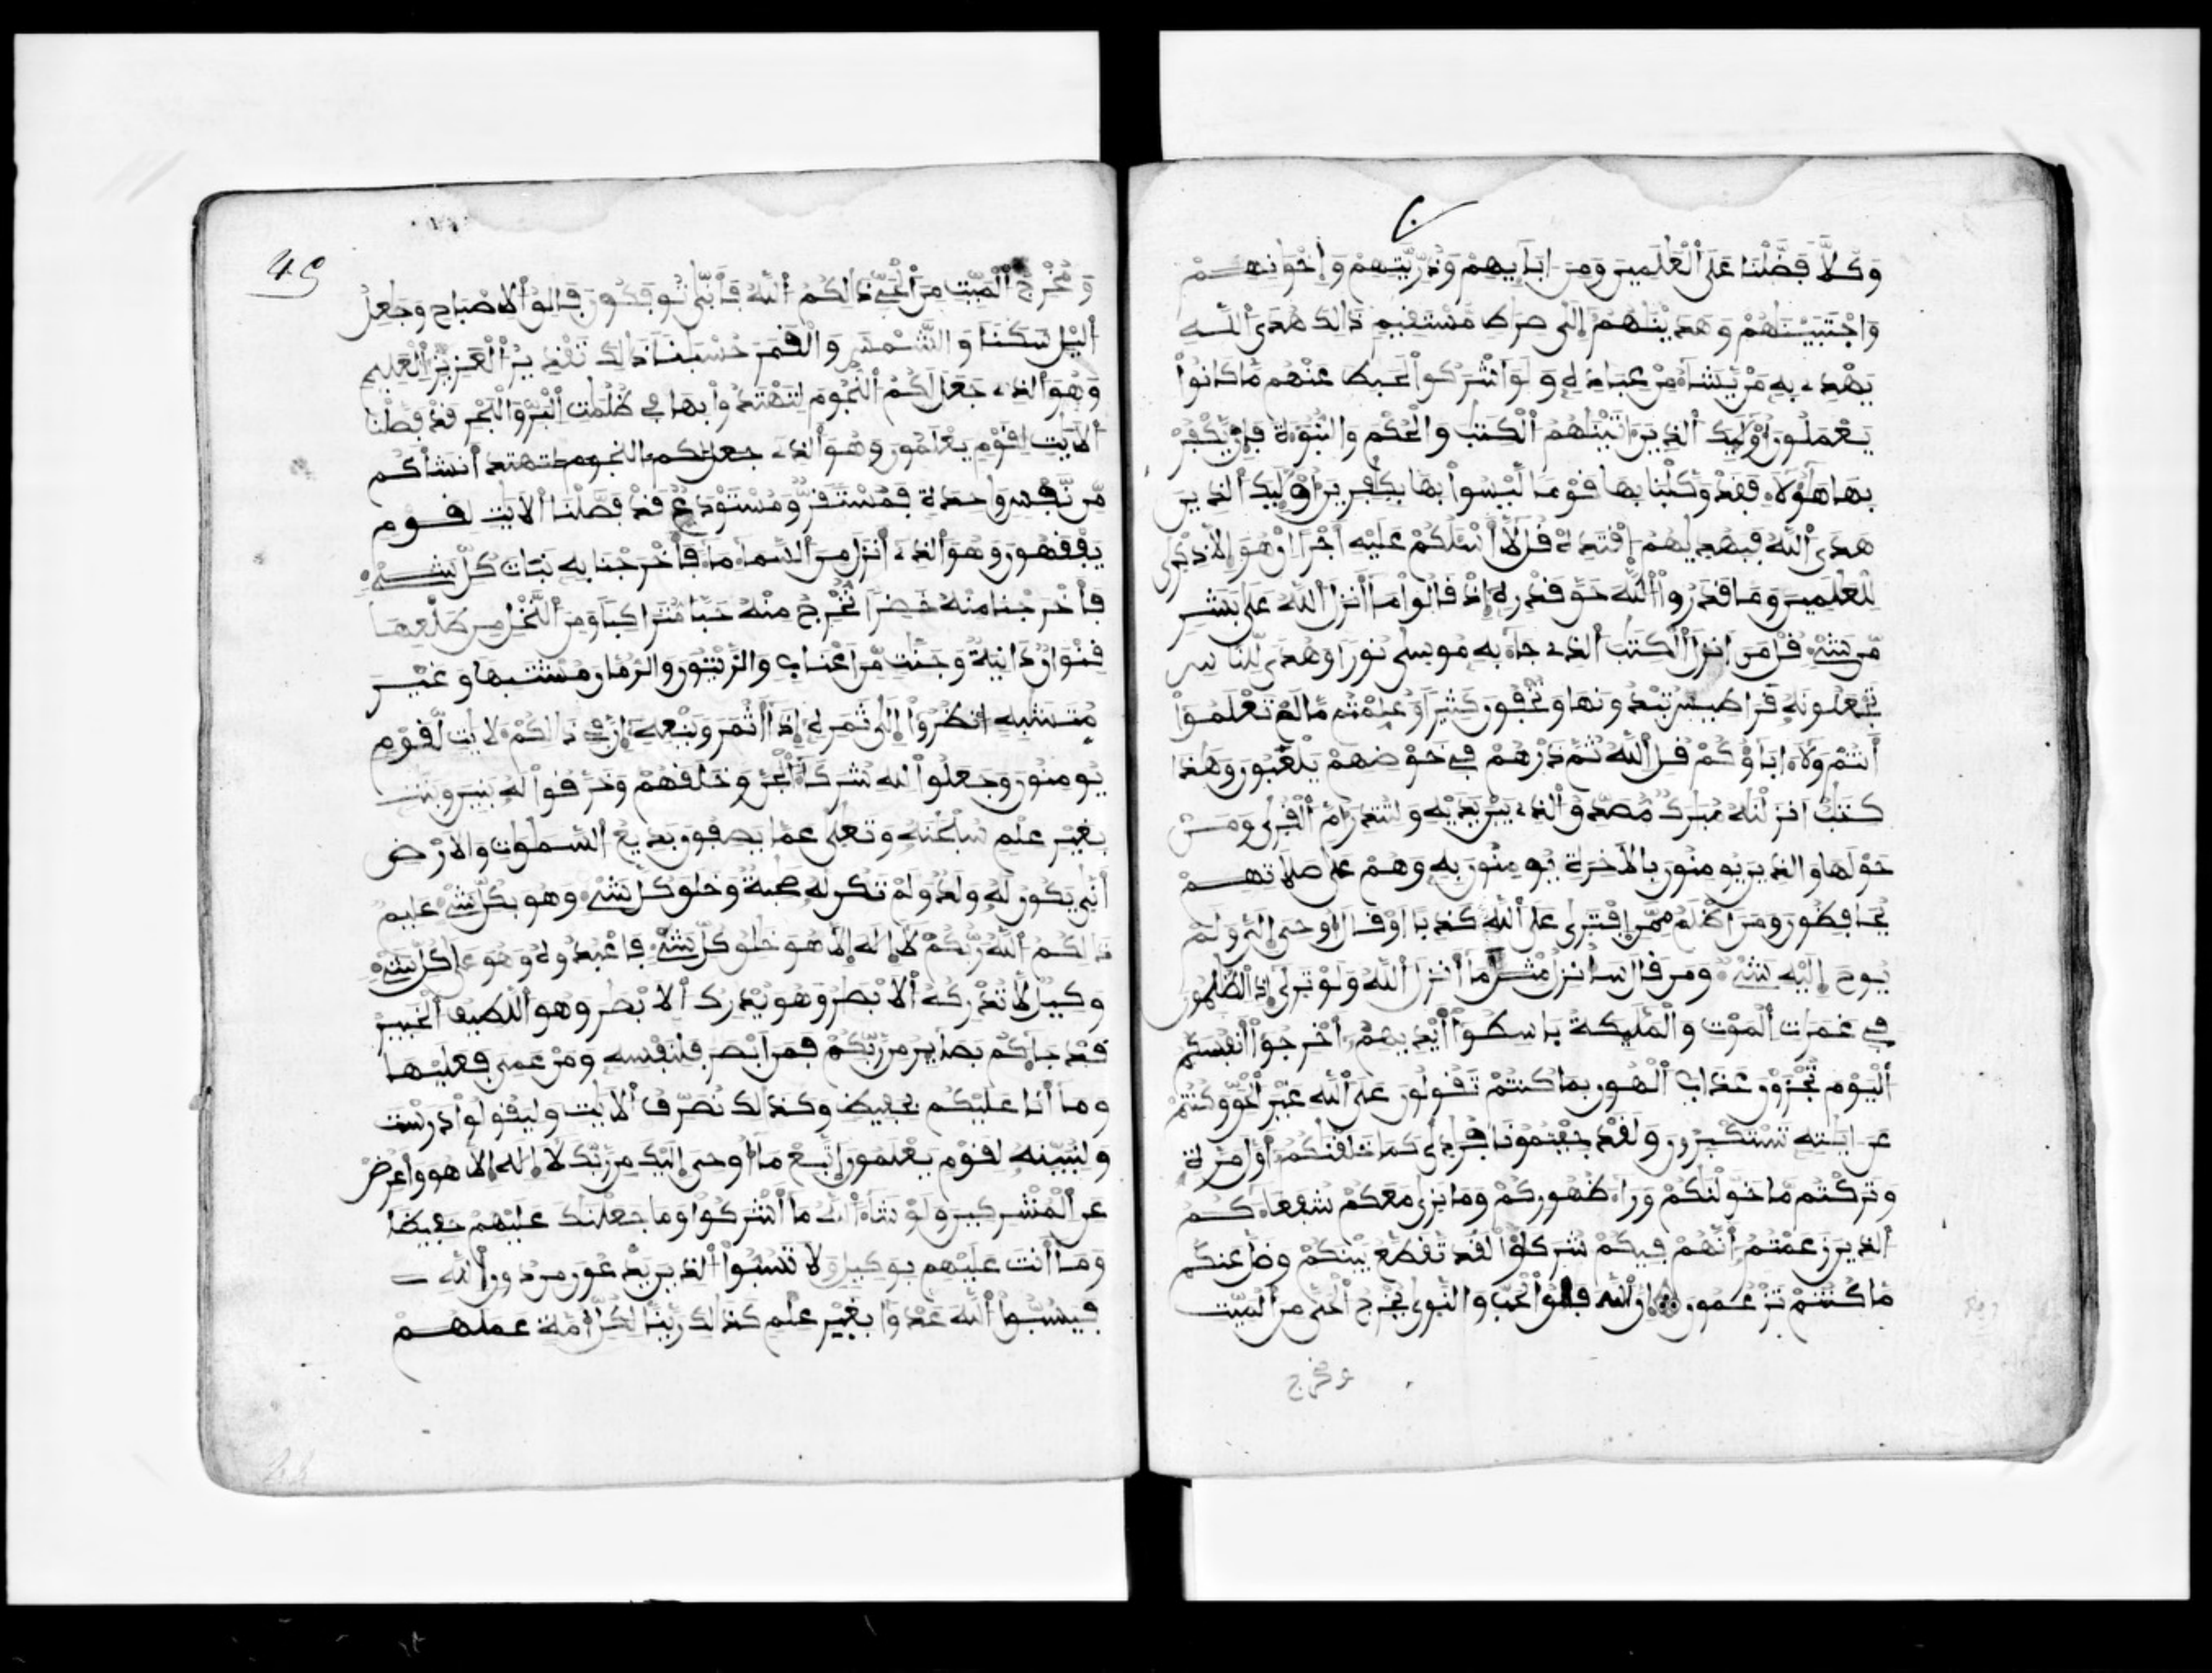 وَكُلّاً فَضَّلْنَا عَلَى ٱلْعَٰلَمِينَ وَمِنَ ابَآئِهِمْ وَذُرِّيَّٰتِهِمْ وَإِخْوَٰنِهِمْ
وَاجْتَبَيْنَٰهُمْ وَهَدَيْنَٰهُمُۥٓ إِلَىٰ صِرَٰطٍ مُّسْتَقِيمٍ ذَٰلِكَ هُدَى ٱللَّهِ
يَهْدِے بِهِۦ مَنْ يَّشَآءُ مِنْ عِبَادِهِۦ وَلَوَ اشْرَكُواْ لَحَبِطَ عَنْهُم مَّا كَانُواْ
يَعْمَلُونَ أُوْلَٰٓئِكَ ٱلذِينَ ءَاتَيْنَٰهُمُ ٱلْكِتَٰبَ وَالْحُكْمَ وَالنُّبُوَّةَ فَإِنْ يَّكْفُرْ
بِهَا هَٰٓؤُلَآءِ فَقَدْ وَكَّلْنَا بِهَا قَوْماً لَّيْسُواْ بِهَا بِكَٰفِرِينَ أُوْلَٰٓئِكَ ٱلذِينَ
هَدَى ٱللَّهُ فَبِهُدَيٰهُمُ اقْتَدِهْ قُل لَّآ أَسْـَٔلُكُمْ عَلَيْهِ أَجْراً انْ هُوَ إِلَّا ذِكْرَىٰ
لِلْعَٰلَمِينَ وَمَا قَدَرُواْ اللَّهَ حَقَّ قَدْرِهِۦٓ إِذْ قَالُواْ مَآ أَنزَلَ ٱللَّهُ عَلَىٰ بَشَرٍ
مِّن شَےْءٍ قُلْ مَنَ انزَلَ ٱلْكِتَٰبَ ٱلذِے جَآءَ بِهِۦ مُوسَىٰ نُوراً وَهُدىً لِّلنَّاسِ
تَجْعَلُونَهُۥ قَرَاطِيسَ تُبْدُونَهَا وَتُخْفُونَ كَثِيراً وَعُلِّمْتُم مَّا لَمْ تَعْلَمُوٓاْ
أَنتُمْ وَلَآ ءَابَآؤُكُمْ قُلِ ٱللَّهُ ثُمَّ ذَرْهُمْ فِے خَوْضِهِمْ يَلْعَبُونَ وَهَٰذَا
كِتَٰبٌ اَنزَلْنَٰهُ مُبَٰرَكٌ مُّصَدِّقُ ٱلذِے بَيْنَ يَدَيْهِ وَلِتُنذِرَ أُمَّ ٱلْقُرَىٰ وَمَنْ
حَوْلَهَا وَالذِينَ يُومِنُونَ بِالَاخِرَةِ يُومِنُونَ بِهِۦ وَهُمْ عَلَىٰ صَلَاتِهِمْ
يُحَافِظُونَ وَمَنَ اظْلَمُ مِمَّنِ ٱفْتَرَىٰ عَلَى ٱللَّهِ كَذِباً اَوْ قَالَ أُوحِىَ إِلَىَّ وَلَمْ
يُوحَ إِلَيْهِ شَےْءٌ وَمَن قَالَ سَأُنزِلُ مِثْلَ مَآ أَنزَلَ ٱللَّهُ وَلَوْ تَرَىٰٓ إِذِ ٱلظَّٰلِمُونَ
فِے غَمَرَٰتِ ٱلْمَوْتِ وَالْمَلَٰٓئِكَةُ بَاسِطُوٓاْ أَيْدِيهِمُۥٓ أَخْرِجُوٓاْ أَنفُسَكُمُ
ٱلْيَوْمَ تُجْزَوْنَ عَذَابَ ٱلْهُونِ بِمَا كُنتُمْ تَقُولُونَ عَلَى ٱللَّهِ غَيْرَ ٱلْحَقِّ وَكُنتُمْ
عَنَ ايَٰتِهِۦ تَسْتَكْبِرُونَ وَلَقَدْ جِئْتُمُونَا فُرَٰدَىٰ كَمَا خَلَقْنَٰكُمُۥٓ أَوَّلَ مَرَّةٍ
وَتَرَكْتُم مَّا خَوَّلْنَٰكُمْ وَرَآءَ ظُهُورِكُمْ وَمَا نَرَىٰ مَعَكُمْ شُفَعَآءَكُمُ
ٱلذِينَ زَعَمْتُمُۥٓ أَنَّهُمْ فِيكُمْ شُرَكَٰٓؤُاْ لَقَد تَّقَطَّعَ بَيْنَكُمْ وَضَلَّ عَنكُم
مَّا كُنتُمْ تَزْعُمُونَ إِنَّ ٱللَّهَ فَٰلِقُ ٱلْحَبِّ وَالنَّوَىٰ يُخْرِجُ ٱلْحَىَّ مِنَ ٱلْمَيِّتِ
ومخرج
49
وَمُخْرِجُ ٱلْمَيِّتِ مِنَ ٱلْحَىِّ ذَٰلِكُمُ ٱللَّهُ فَأَنَّىٰ تُوفَكُونَ فَالِقُ ٱلِاصْبَاحِ وَجَٰعِلُ
ٱليْلِ سَكَناً وَالشَّمْسَ وَالْقَمَرَ حُسْبَٰناً ذَٰلِكَ تَقْدِيرُ ٱلْعَزِيزِ ٱلْعَلِيمِ
وَهُوَ ٱلذِے جَعَلَ لَكُمُ ٱلنُّجُومَ لِتَهْتَدُواْ بِهَا فِے ظُلُمَٰتِ ٱلْبَرِّ وَالْبَحْرِ قَدْ فَصَّلْنَا
ٱلَايَٰتِ لِقَوْمٍ يَعْلَمُونَ وَهُوَ ٱلذِے جعل لكم النجوم لتهتد أَنشَأَكُم
مِّن نَّفْسٍ وَٰحِدَةٍ فَمُسْتَقَرٌّ وَمُسْتَوْدَعٌ قَدْ فَصَّلْنَا ٱلَايَٰتِ لِقَوْمٍ
يَفْقَهُونَ وَهُوَ ٱلذِےٓ أَنزَلَ مِنَ ٱلسَّمَآءِ مَآءً فَأَخْرَجْنَا بِهِۦ نَبَاتَ كُلِّ شَےْءٍ
فَأَخْرَجْنَا مِنْهُ خَضِراً نُّخْرِجُ مِنْهُ حَبّاً مُّتَرَاكِباً وَمِنَ ٱلنَّخْلِ مِن طَلْعِهَا
قِنْوَانٌ دَانِيَةٌ وَجَنَّٰتٍ مِّنَ اعْنَابٍ وَالزَّيْتُونَ وَالرُّمَّانَ مُشْتَبِهاً وَغَيْرَ
مُتَشَٰبِهٍ انظُرُوٓاْ إِلَىٰ ثَمَرِهِۦٓ إِذَآ أَثْمَرَ وَيَنْعِهِۦٓ إِنَّ فِے ذَٰلِكُمْ لَأٓيَٰتٍ لِّقَوْمٍ
يُومِنُونَ وَجَعَلُواْ لِلهِ شُرَكَآءَ ٱلْجِنَّ وَخَلَقَهُمْ وَخَرَّقُواْ لَهُۥ بَنِينَ وَبَنَٰتٍ
بِغَيْرِ عِلْمٍ سُبْحَٰنَهُۥ وَتَعَٰلَىٰ عَمَّا يَصِفُونَ بَدِيعُ ٱلسَّمَٰوَٰتِ وَالَارْضِ
أَنَّىٰ يَكُونُ لَهُۥ وَلَدٌ وَلَمْ تَكُن لَّهُۥ صَٰحِبَةٌ وَخَلَقَ كُلَّ شَےْءٍ وَهُوَ بِكُلِّ شَےْءٍ عَلِيمٌ
ذَٰلِكُمُ ٱللَّهُ رَبُّكُمْ لَآ إِلَٰهَ إِلَّا هُوَ خَٰلِقُ كُلِّ شَےْءٍ فَاعْبُدُوهُ وَهُوَ عَلَىٰ كُلِّ شَےْءٍ
وَكِيلٌ لَّا تُدْرِكُهُ ٱلَابْصَٰرُ وَهُوَ يُدْرِكُ ٱلَابْصَٰرَ وَهُوَ ٱللَّطِيفُ ٱلْخَبِيرُ
قَدْ جَآءَكُم بَصَآئِرُ مِن رَّبِّكُمْ فَمَنَ ابْصَرَ فَلِنَفْسِهِۦ وَمَنْ عَمِىَ فَعَلَيْهَا
وَمَآ أَنَا عَلَيْكُم بِحَفِيظٍ وَكَذَٰلِكَ نُصَرِّفُ ٱلَايَٰتِ وَلِيَقُولُواْ دَرَسْتَ
وَلِنُبَيِّنَهُۥ لِقَوْمٍ يَعْلَمُونَ اِتَّبِعْ مَآ أُوحِىَ إِلَيْكَ مِن رَّبِّكَ لَآ إِلَٰهَ إِلَّا هُوَ وَأَعْرِضْ
عَنِ ٱلْمُشْرِكِينَ وَلَوْ شَآءَ ٱللَّهُ مَآ أَشْرَكُواْ وَمَا جَعَلْنَٰكَ عَلَيْهِمْ حَفِيظاً
وَمَآ أَنتَ عَلَيْهِم بِوَكِيلٍ وَلَا تَسُبُّواْ ٱلذِينَ يَدْعُونَ مِن دُونِ ٱللَّهِ
فَيَسُبُّواْ ٱللَّهَ عَدْواً بِغَيْرِ عِلْمٍ كَذَٰلِكَ زَيَّنَّا لِكُلِّ أُمَّةٍ عَمَلَهُمْ